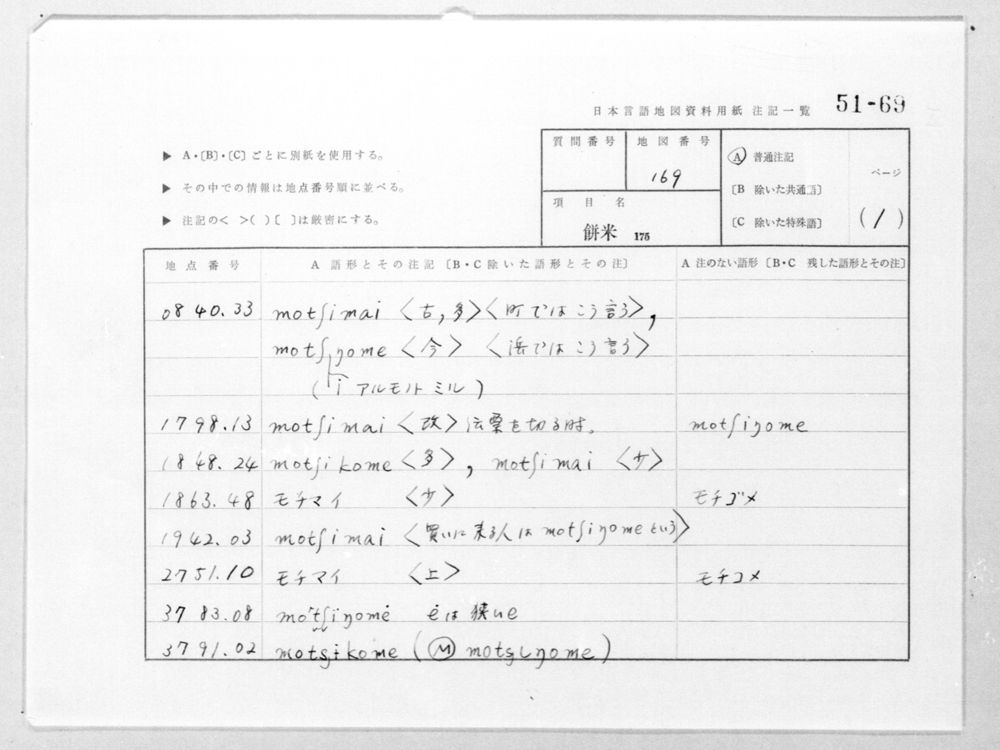 51-69
日本言語地図資料用紙 注記一覧
▶ A・〔B〕・〔C〕ごとに別紙を使用する。
▶ その中での情報は地点番号順に並べる。
▶ 注記の< >( )[ ]は厳密にする。
質問番号 地図番号 169
項目名 餅米 175
Ⓐ 普通注記
〔B 除いた共通語〕
〔C 除いた特殊語〕
ページ (1)
地点番号 A 語形とその注記〔B・C 除いた語形とその注〕 A 注のない語形〔B・C 残した語形とその注〕
0840.33 motʃimai 〈古,多〉〈町ではこう言う〉,
motʃiŋome 〈今〉 〈浜ではこう言う〉
(i アルモノトミル)
1798.13 motʃimai 〈改〉伝票を切る時。 motʃiŋome
1848.24 motʃikome 〈多〉, motʃimai 〈少〉
1863.48 モチマイ 〈少〉 モチゴメ
1942.03 motʃimai 〈買いに来る人は motʃiŋome という〉
2751.10 モチマイ 〈上〉 モチコメ
3783.08 motʃiŋomė ėは狭いe
3791.02 (Ⓜ